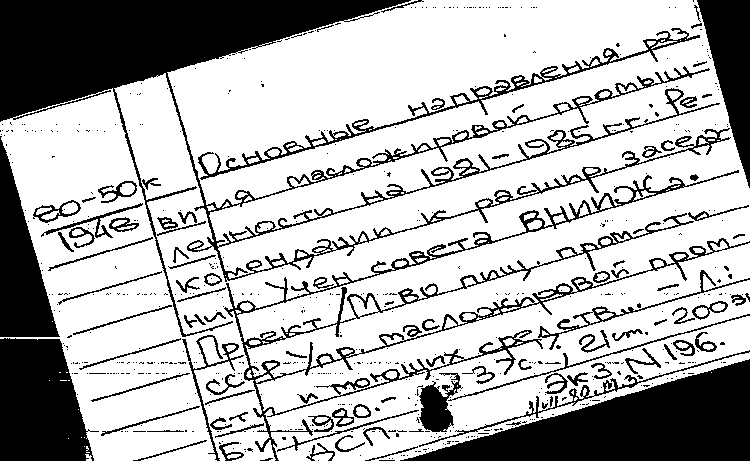 Основные направления раз-
80-50к
1948
вития масложировой промыш-
ленности на 1981-1985 гг.: Ре-
комендации к расшир. заседа-
нию Учен совета ВНИИЖа.
Проект / М-во пищ. пром-сти
СССР. Упр. масложировой пром-
сти и моющих средств... - Л.:
Б.и., 1980. - 37с.; 21см. - 200экз.
ДСП. Экз. N 196.